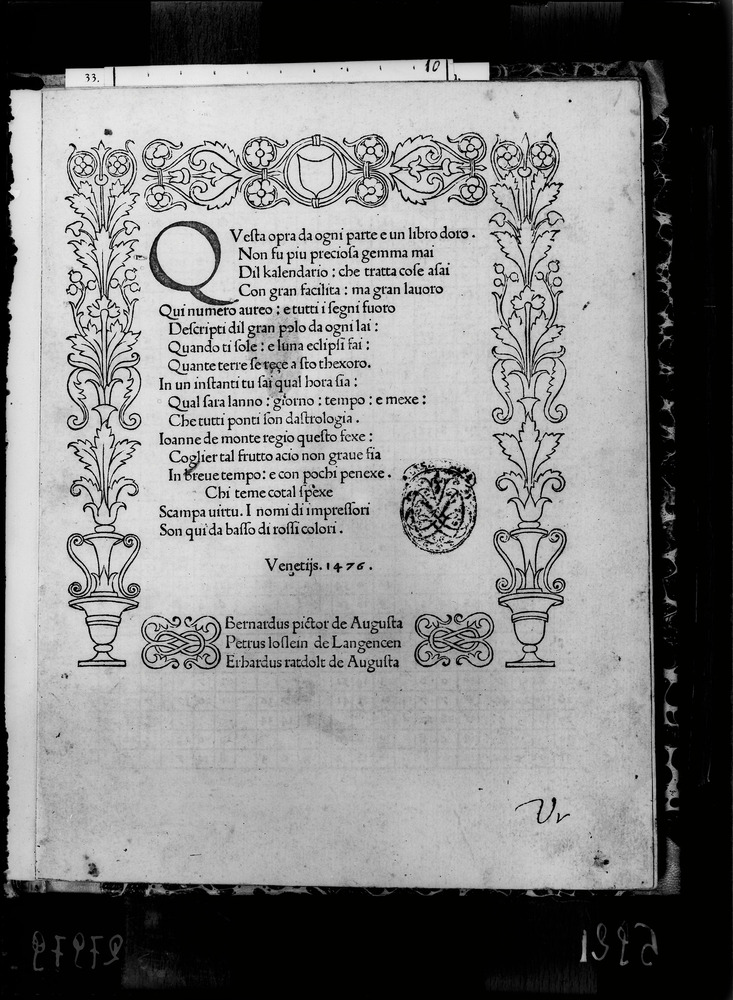 33.
10
QVeſta opra da ogni parte e un libro doro.
Non fu piu precioſa gemma mai
Dil kalendario: che tratta coſe aſai
Con gran facilita: ma gran lauoro
Qui numero aureo: e tutti i ſegni fuoro
Deſcripti dil gran polo da ogni lai:
Quando ti ſole: e luna eclipſi fai:
Quante terre ſe rege a ſto thexoro.
In un inſtanti tu ſai qual hora ſia:
Qual ſara lanno: giorno: tempo: e mexe:
Che tutti ponti ſon daſtrologia.
Ioanne de monte regio queſto fexe:
Coglier tal frutto acio non graue ſia
In breue tempo: e con pochi penexe.
Chi teme cotal ſpexe
Scampa uirtu. I nomi di impreſſori
Son qui da baſſo di roſſi colori.
Venetijs. 1476.
Bernardus pictor de Auguſta
Petrus loſlein de Langencen
Erhardus ratdolt de Auguſta
27979
5921